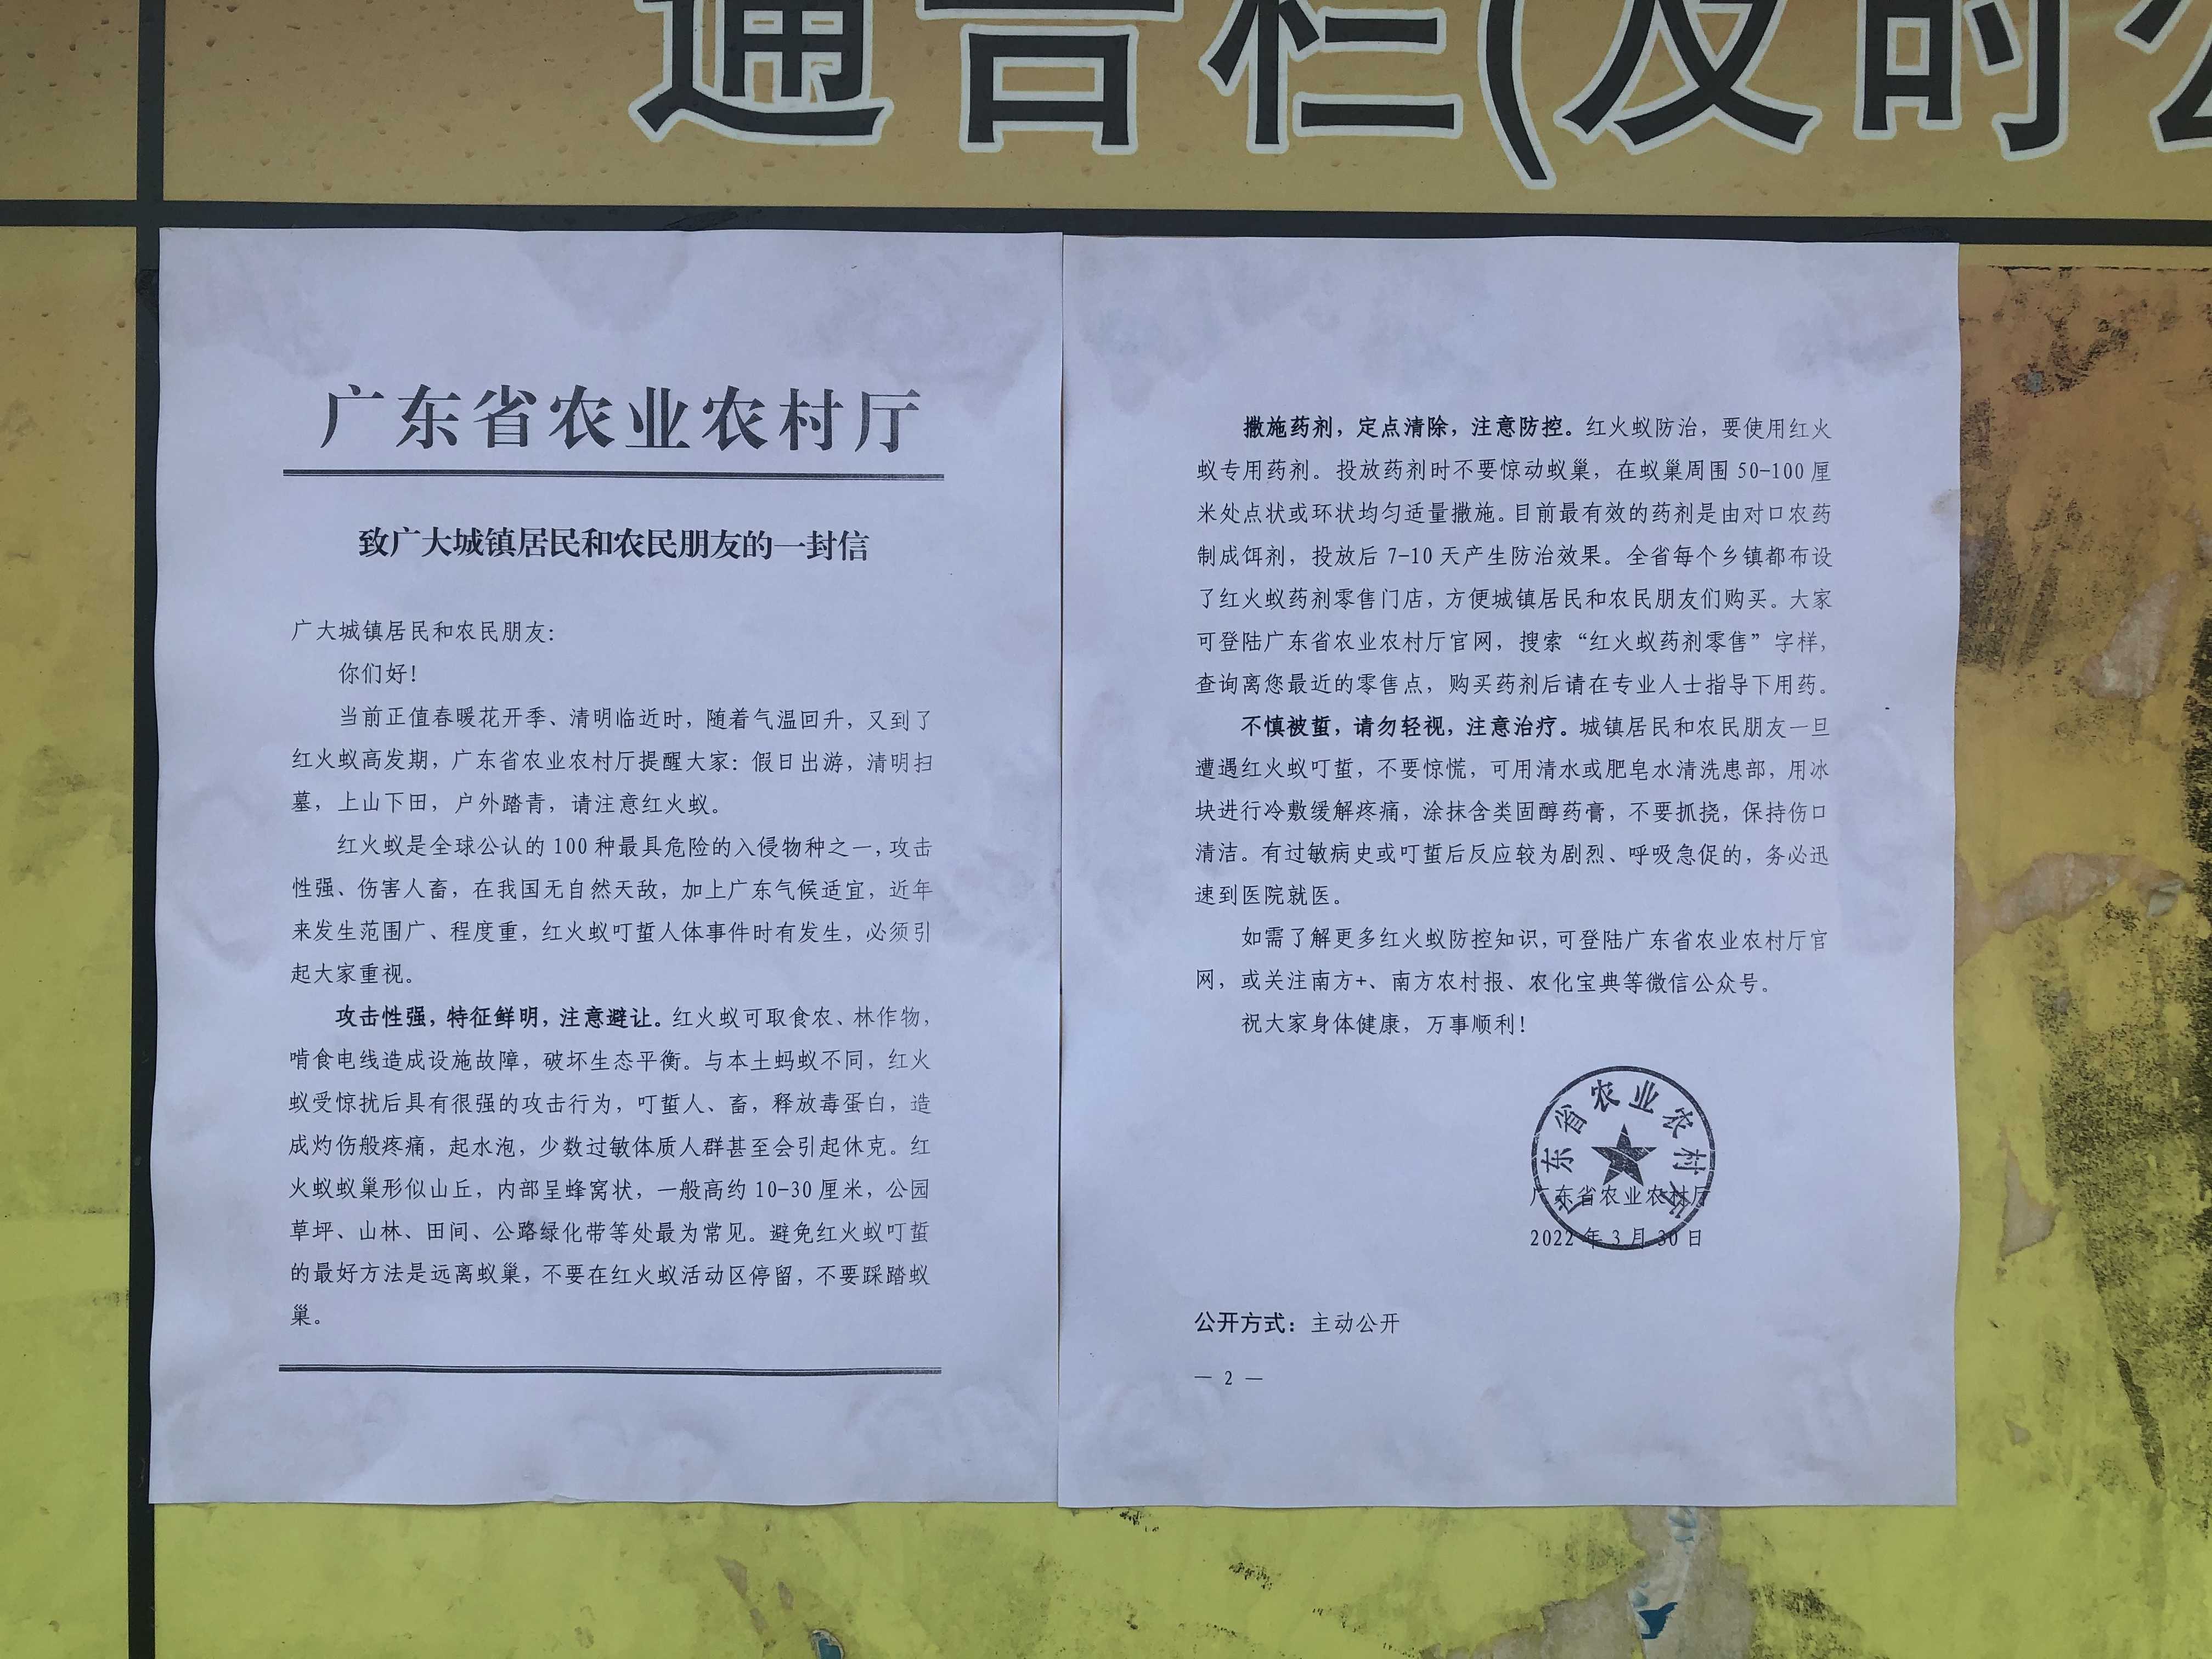 通告栏(及时公
广东省农业农村厅
致广大城镇居民和农民朋友的一封信
广大城镇居民和农民朋友：
你们好！
当前正值春暖花开季、清明临近时，随着气温回升，又到了
红火蚁高发期，广东省农业农村厅提醒大家：假日出游，清明扫
墓，上山下田，户外踏青，请注意红火蚁。
红火蚁是全球公认的100种最具危险的入侵物种之一，攻击
性强、伤害人畜，在我国无自然天敌，加上广东气候适宜，近年
来发生范围广、程度重，红火蚁叮蜇人体事件时有发生，必须引
起大家重视。
攻击性强，特征鲜明，注意避让。红火蚁可取食农、林作物，
啃食电线造成设施故障，破坏生态平衡。与本土蚂蚁不同，红火
蚁受惊扰后具有很强的攻击行为，叮蜇人、畜，释放毒蛋白，造
成灼伤般疼痛，起水泡，少数过敏体质人群甚至会引起休克。红
火蚁蚁巢形似山丘，内部呈蜂窝状，一般高约10-30厘米，公园
草坪、山林、田间、公路绿化带等处最为常见。避免红火蚁叮蜇
的最好方法是远离蚁巢，不要在红火蚁活动区停留，不要踩踏蚁
巢。
撒施药剂，定点清除，注意防控。红火蚁防治，要使用红火
蚁专用药剂。投放药剂时不要惊动蚁巢，在蚁巢周围50-100厘
米处点状或环状均匀适量撒施。目前最有效的药剂是由对口农药
制成饵剂，投放后7-10天产生防治效果。全省每个乡镇都布设
了红火蚁药剂零售门店，方便城镇居民和农民朋友们购买。大家
可登陆广东省农业农村厅官网，搜索“红火蚁药剂零售”字样，
查询离您最近的零售点，购买药剂后请在专业人士指导下用药。
不慎被蜇，请勿轻视，注意治疗。城镇居民和农民朋友一旦
遭遇红火蚁叮蜇，不要惊慌，可用清水或肥皂水清洗患部，用冰
块进行冷敷缓解疼痛，涂抹含类固醇药膏，不要抓挠，保持伤口
清洁。有过敏病史或叮蜇后反应较为剧烈、呼吸急促的，务必迅
速到医院就医。
如需了解更多红火蚁防控知识，可登陆广东省农业农村厅官
网，或关注南方+、南方农村报、农化宝典等微信公众号。
祝大家身体健康，万事顺利！
广东省农业农村厅
广东省农业农村厅
2022年3月30日
公开方式：主动公开
— 2 —